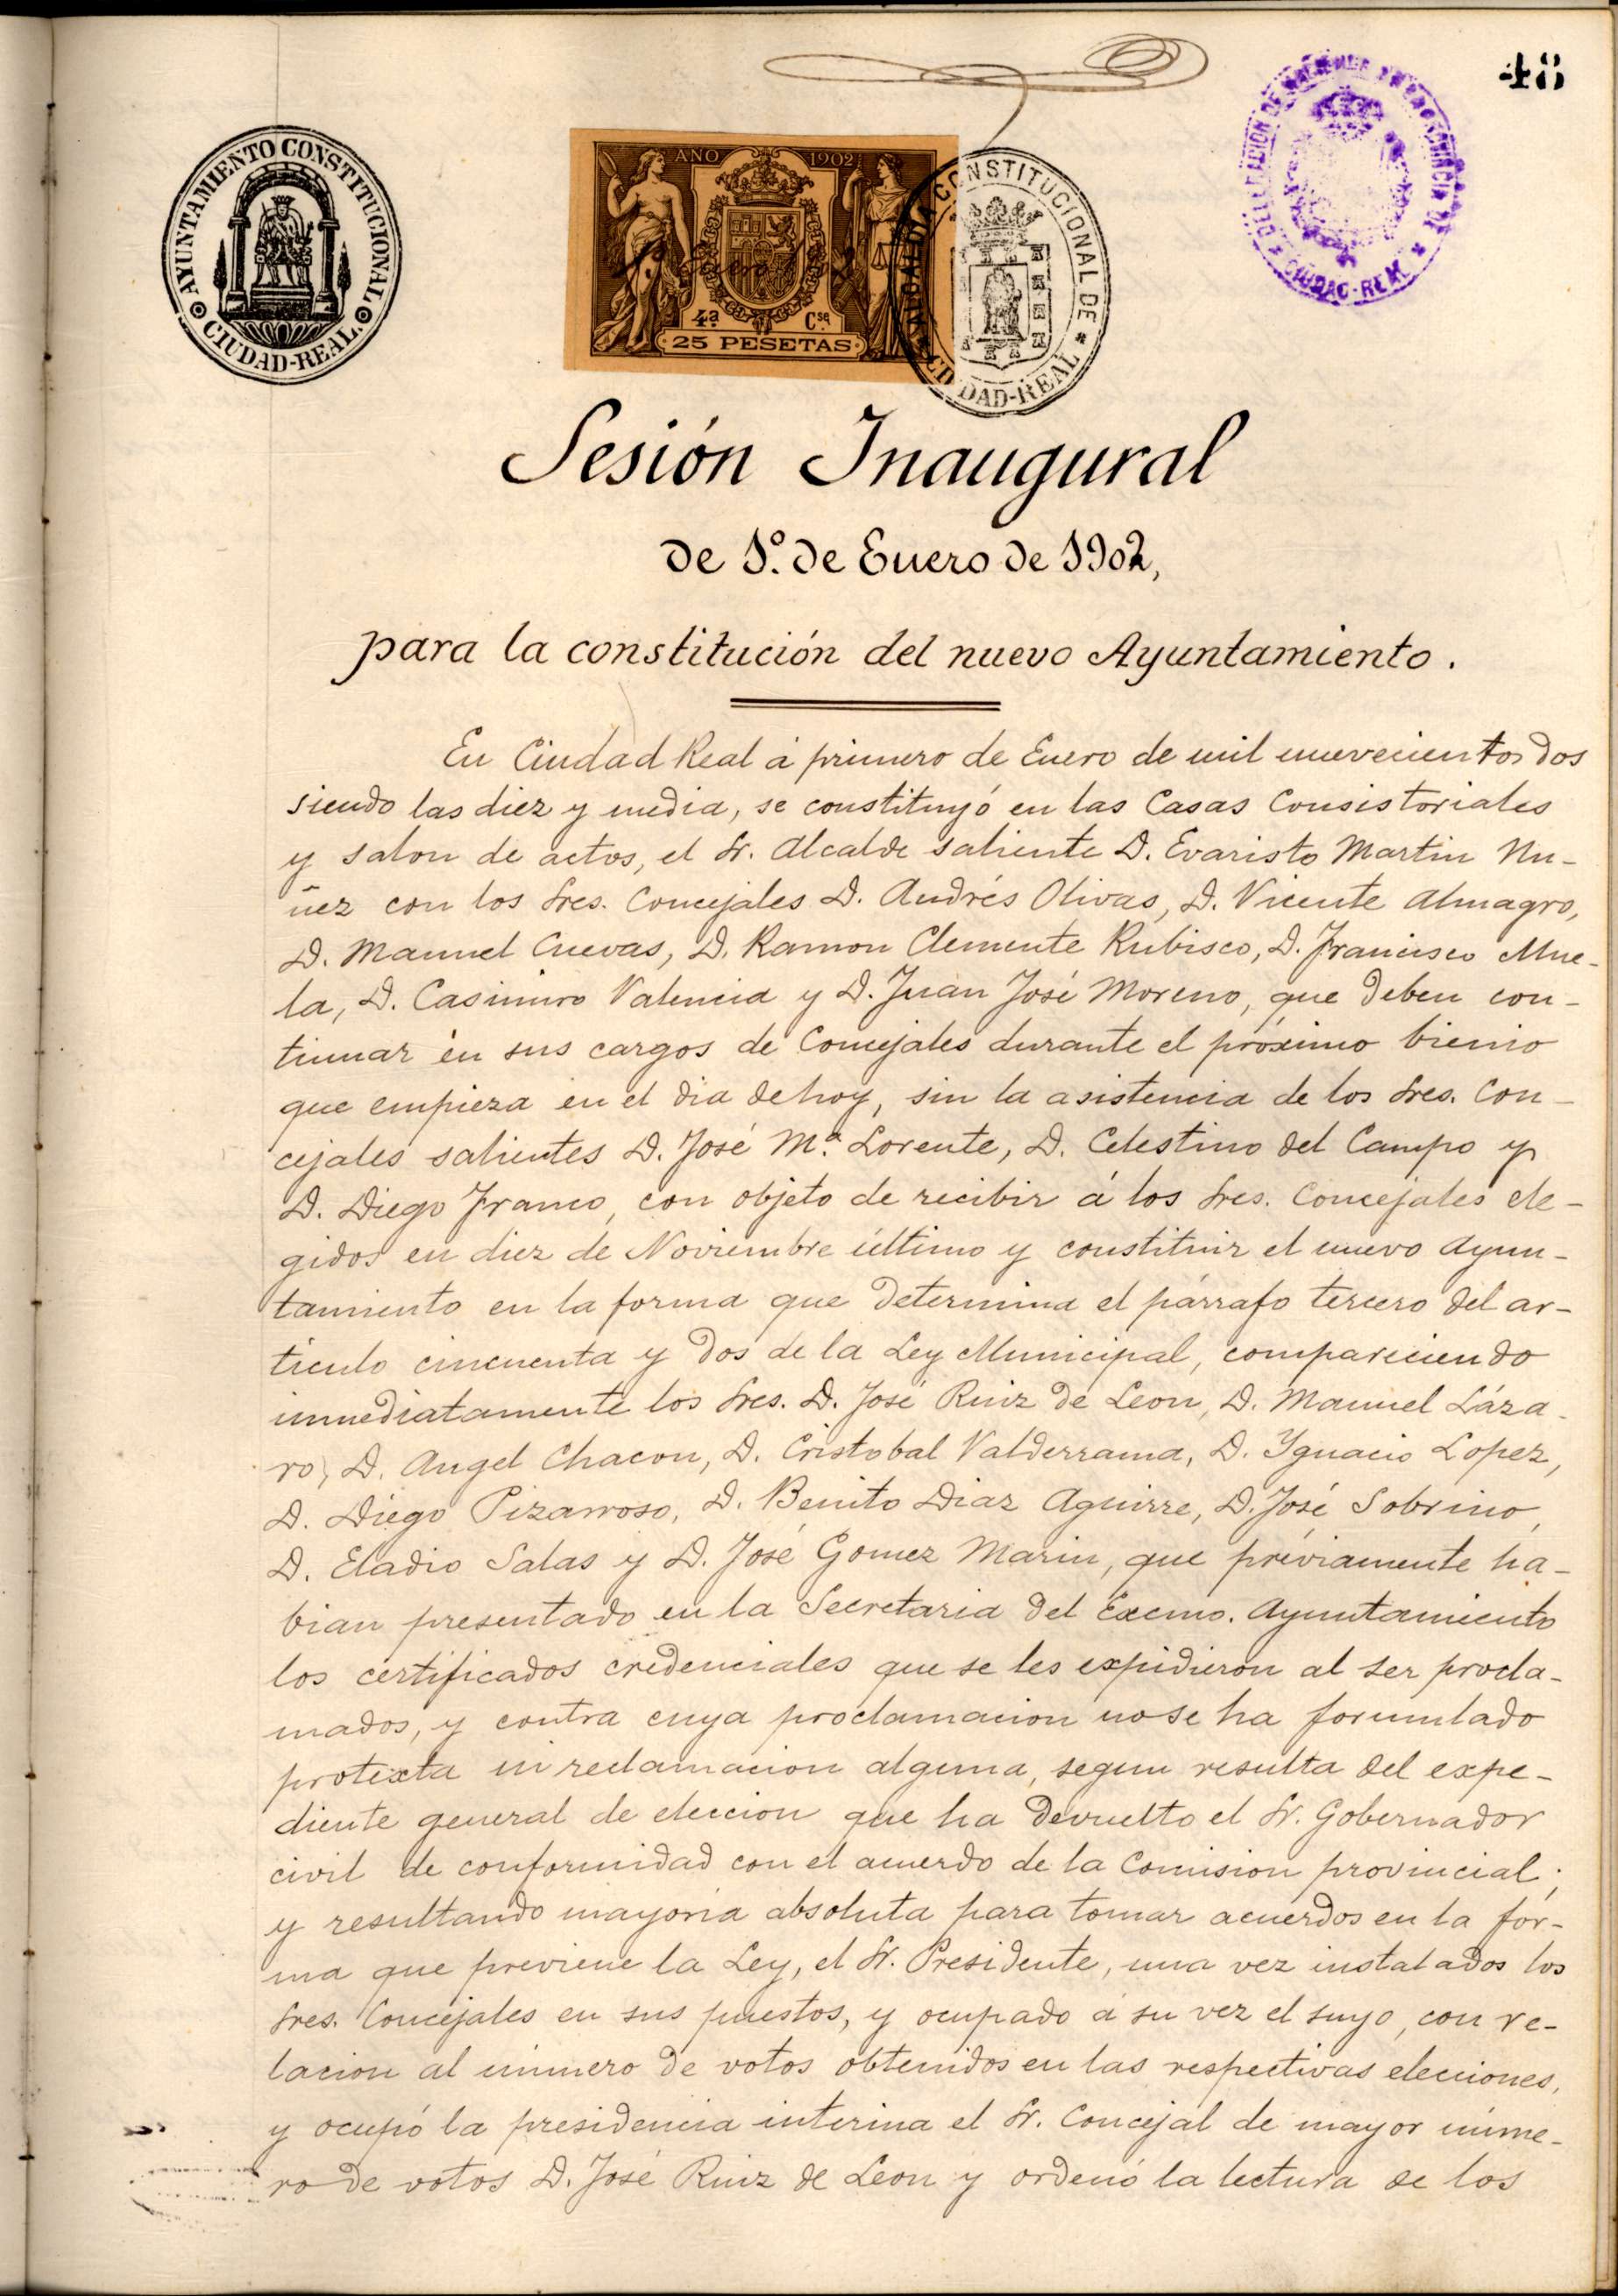 48
AYUNTAMIENTO CONSTITUCIONAL
CIUDAD-REAL
AÑO 1902
1º Enero
4ª Cse
25 PESETAS
ALCALDIA CONSTITUCIONAL DE
CIUDAD-REAL
DELEGACION DE HACIENDA PROVINCIA DE
CIUDAD-REAL
Sesión Inaugural
de 1º. de Enero de 1902,
para la constitución del nuevo Ayuntamiento.
En Ciudad Real á primero de Enero de mil nuevecientos dos
siendo las diez y media, se constituyó en las Casas Consistoriales
y salon de actos, el Sr. Alcalde saliente D. Evaristo Martin Nu-
ñez con los Sres. Concejales D. Andrés Olivas, D. Vicente Almagro,
D. Manuel Cuevas, D. Ramon Clemente Rubisco, D. Francisco Mue-
la, D. Casimiro Valencia y D. Juan José Moreno, que deben con-
tinuar en sus cargos de Concejales durante el próximo bienio
que empieza en el dia de hoy, sin la asistencia de los Sres. Con-
cejales salientes D. José Mª. Lorente, D. Celestino del Campo y
D. Diego Franco, con objeto de recibir á los Sres. Concejales ele-
gidos en diez de Noviembre último y constituir el nuevo Ayun-
tamiento en la forma que determina el párrafo tercero del ar-
ticulo cincuenta y dos de la Ley Municipal, compareciendo
inmediatamente los Sres. D. José Ruiz de Leon, D. Manuel Láza-
ro, D. Angel Chacon, D. Cristobal Valderrama, D. Ygnacio Lopez,
D. Diego Pizarroso, D. Benito Diaz Aguirre, D. José Sobrino,
D. Eladio Salas y D. José Gomez Marin, que préviamente ha-
bian presentado en la Secretaria del Excmo. Ayuntamiento
los certificados credenciales que se les expidieron al ser procla-
mados, y contra cuya proclamacion no se ha formulado
protexta ni reclamacion alguna, segun resulta del expe-
diente general de eleccion que ha devuelto el Sr. Gobernador
civil de conformidad con el acuerdo de la Comision provincial;
y resultando mayoria absoluta para tomar acuerdos en la for-
ma que previene la Ley, el Sr. Presidente, una vez instalados los
Sres. Concejales en sus puestos, y ocupado á su vez el suyo, con re-
lacion al número de votos obtenidos en las respectivas elecciones,
y ocupó la presidencia interina el Sr. Concejal de mayor núme-
ro de votos D. José Ruiz de Leon y ordenó la lectura de los